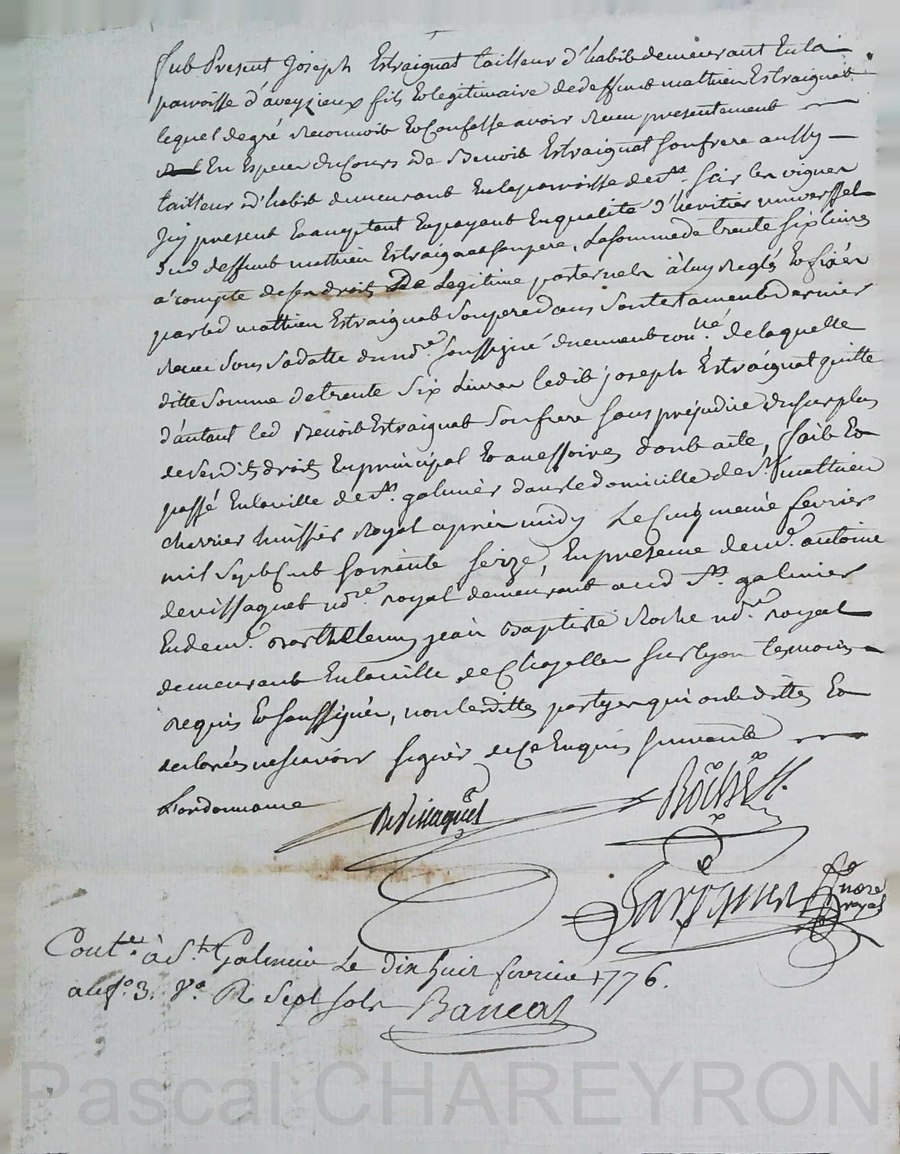 fut Present Joseph Estraignat tailleur d'habit demeurant En la
paroisse d'aveyzieux fils Et legitimaire de deffunt mathieu Estraignat
lequel de gré Reconnoit Et Confesse avoir Receu presentement
En Especes du Cours de Benoit Estraignat son frere aussy
tailleur d'habit demeurant En la paroisse de st.
Jcy present Et acceptant Et payant En qualité d'heritier universsel
dud deffunt mathieu Estraignat son pere, La somme de trente six livres
a compte de ses droits De Legitime paternels à luy Reglés Et fixés
par led mathieu Estraignat son pere dans son testament dernier
Receu sous sa datte du nore. soussigné duement conllé. de laquelle
ditte somme de trente six Livres ledit joseph Estraignat quitte
d'autant led Benoit Estraignat son frere sans prejudice du surplus
de sesdits droits En principal Et accessoires dont acte, fait Et
passé En la ville de st. galmier dans le domicille de sr. mathieu
cherrier huissier Royal apres midy Le cinquieme fevrier
mil sept Cent soixante seize, En presence de me. antoine
devissaguet nore. royal demeurant aud st. galmier
Et de me. Barthellemy jean Baptiste Roche nore. royal
demeurant En la ville de Chazelles sur lyon temoins
requis Et soussignés, non lesdittes partyes qui ont dittes Et
declarés ne scavoir signer de Ce Enquis suivant
L'ordonnance Devissaguet Roche
nore royal
Conte. à st. Galmier Le dix huit fevrier 1776.
au fo. 3. Vo. R. sept sols Bancal
Pascal CHAREYRON